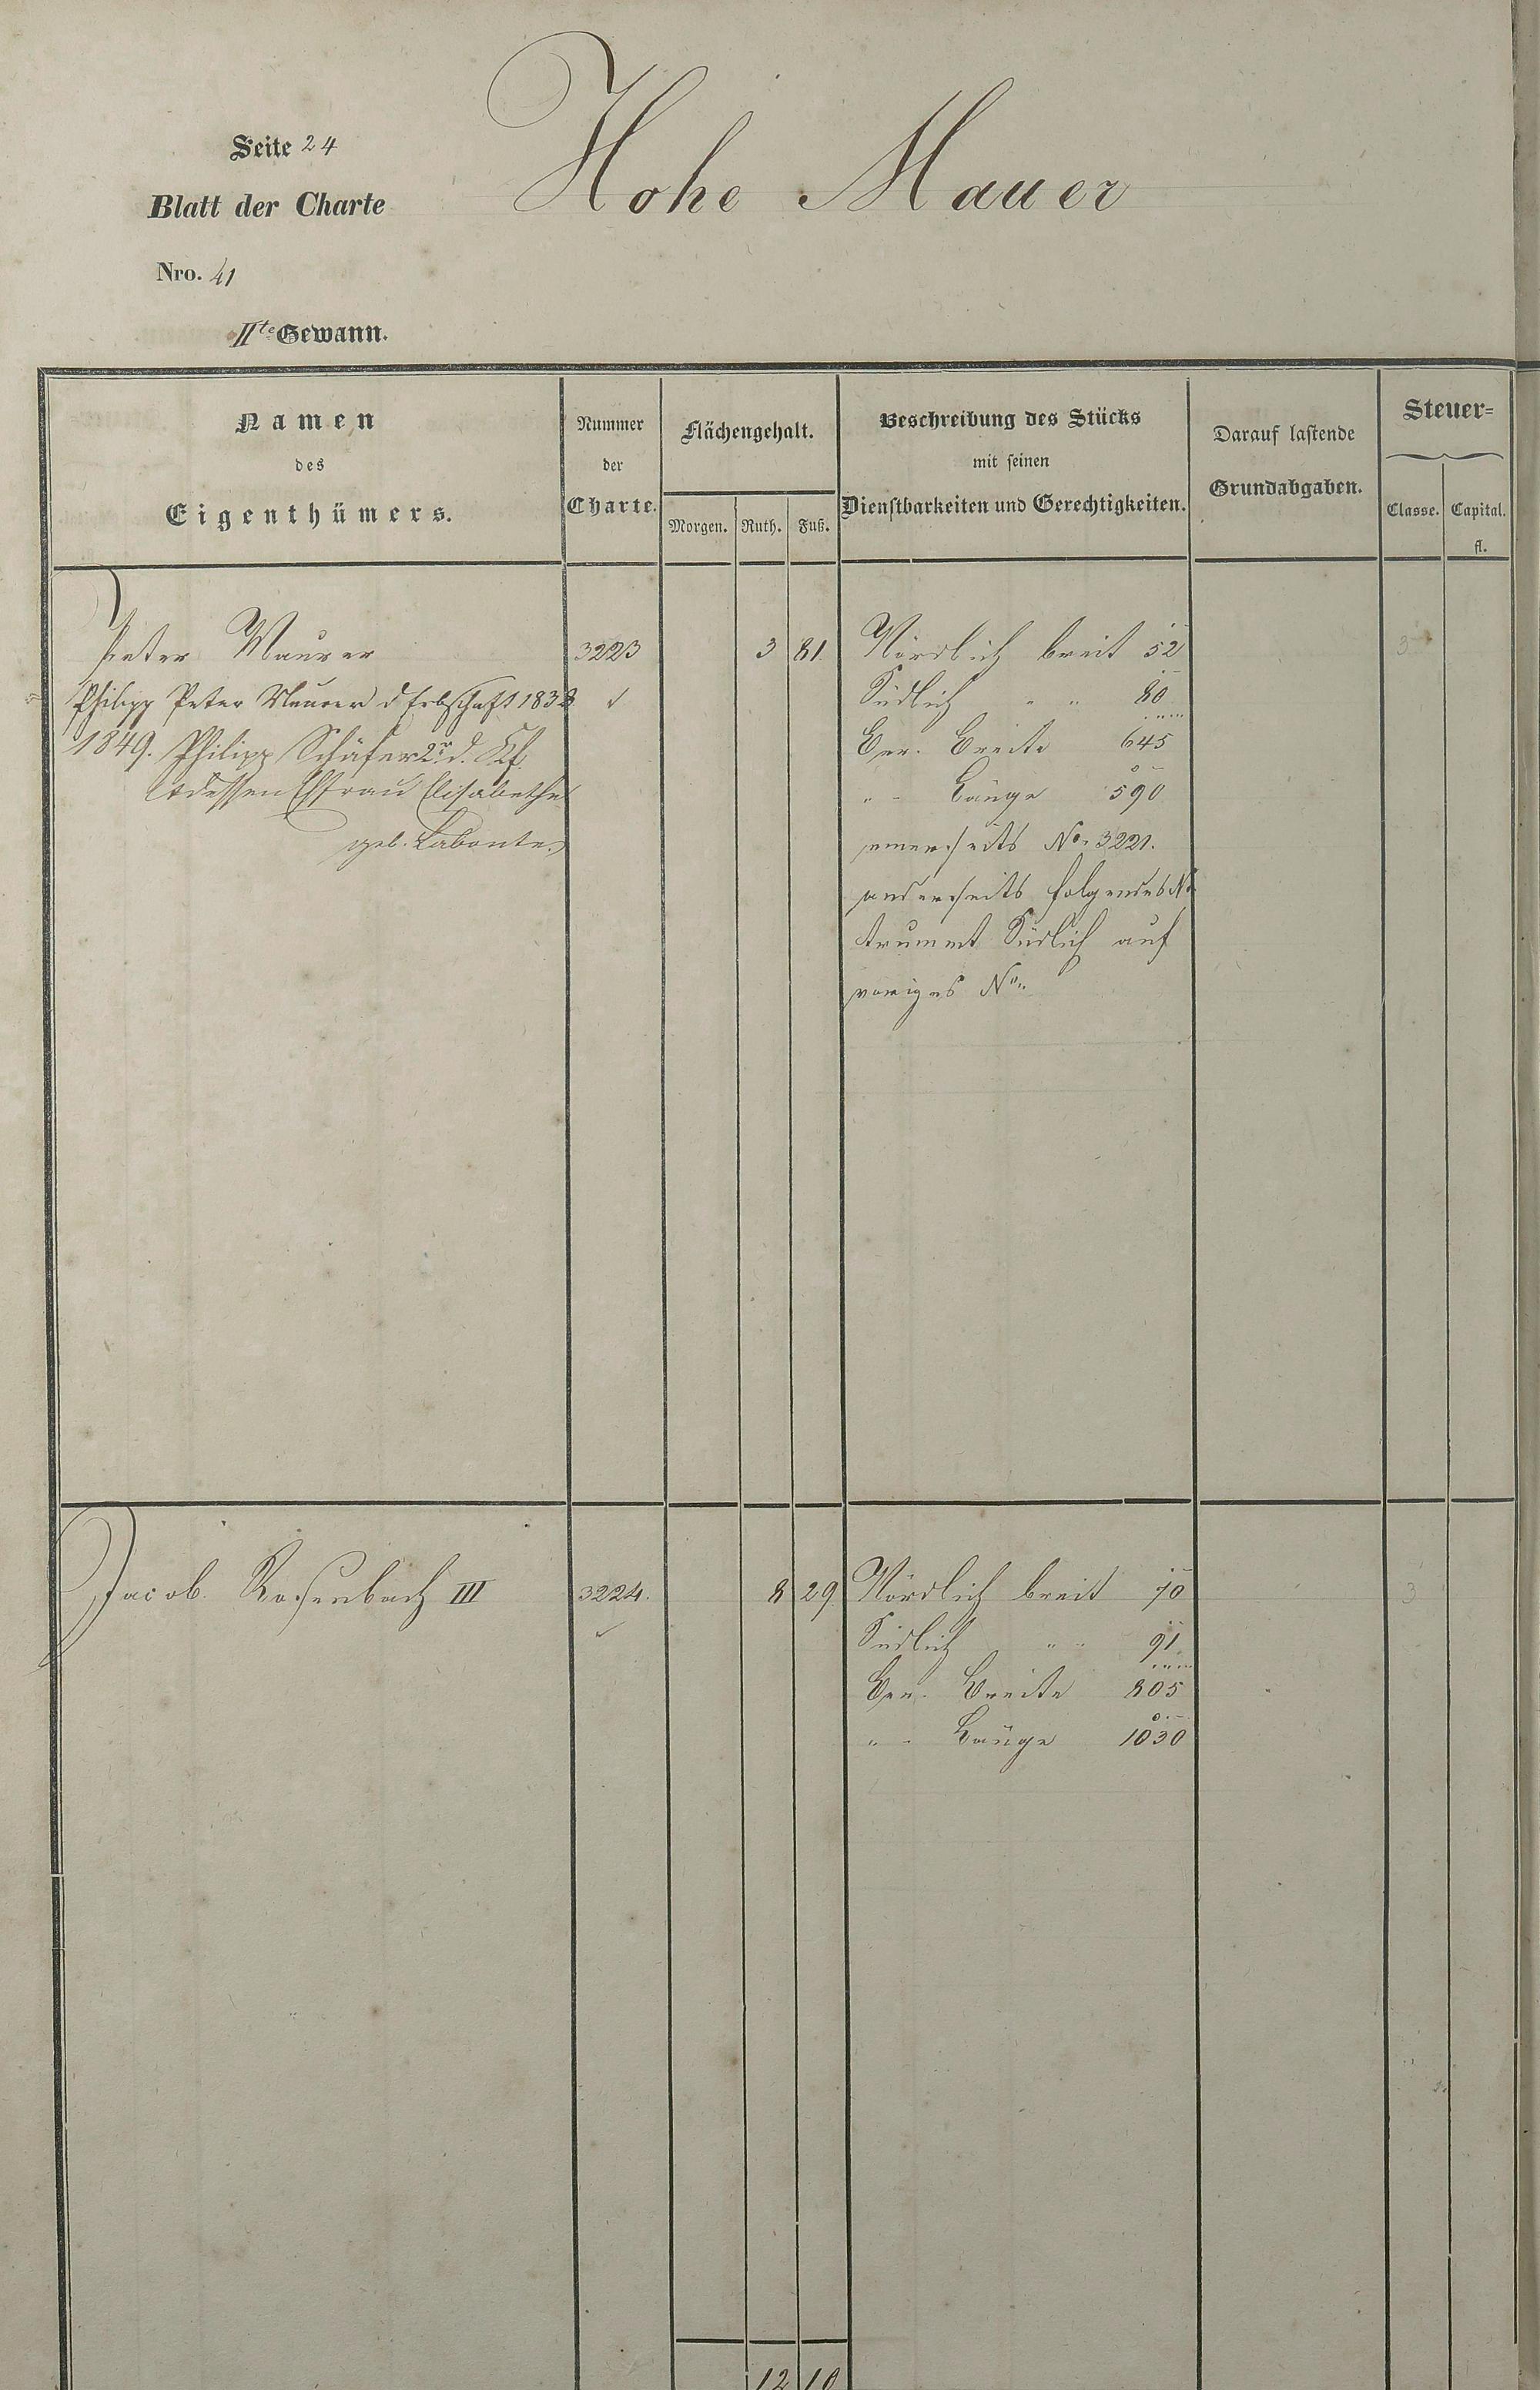 Hohe Mauer
Seite 24
Blatt der Charte
Nro. 41
IIte Gewann.
Namen
des
Eigenthümers.
Nummer
der
Charte.
Flächengehalt.
Morgen. Ruth. Fuß.
Beschreibung des Stücks
mit seinen
Dienstbarkeiten und Gerechtigkeiten.
Darauf lastende
Grundabgaben.
Steuer=
Classe. Capital.
fl.
Peter Maurer 3223 3 81 Nördlich breit 52 3
Philipp Peter Maurer d Erbschaft 1838 Südlich " " 80
1849. Philipp Schäfer 2r d. Kf. Ver. Breite 645
dessen Ehfrau Elisabethe " " Länge 590
geb. Labonte. einerseits No. 3221.
anderseits folgendes No
trummt Südlich auf
voriges No.
Jacob Rosenbach III 3224. 8 29 Nördlich breit 70 3
Südlich " " 91
Ver. Breite 805
" " Länge 1030
12 10